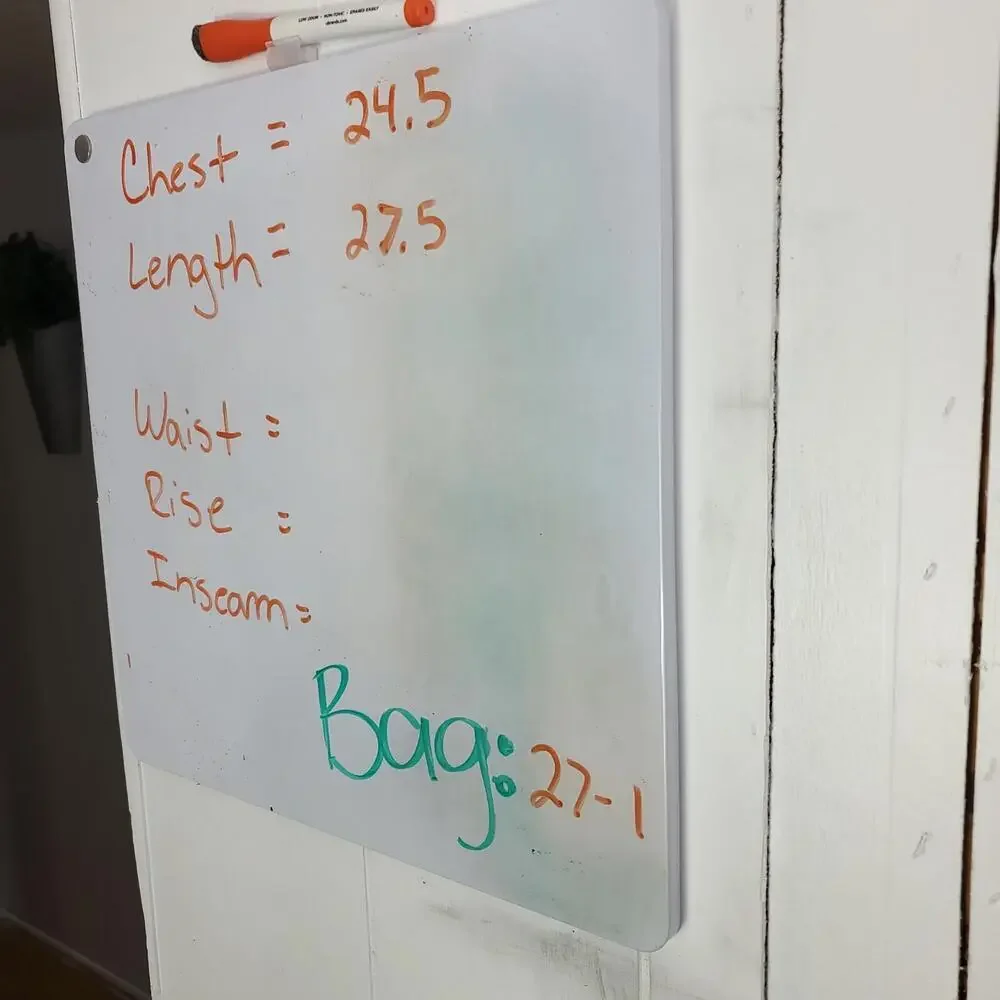 LOW ODOR • NON-TOXIC • ERASES EASILY
Chest = 24.5
Length = 27.5
Waist =
Rise =
Inseam =
Bag: 27-1